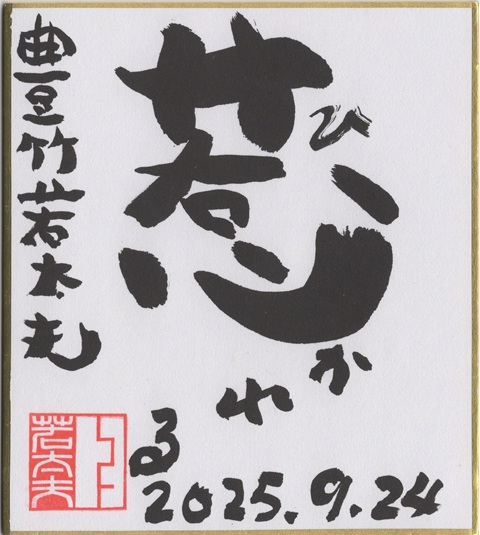 惹
ひ
かれる
2025.9.24
豊竹若太夫
若太夫